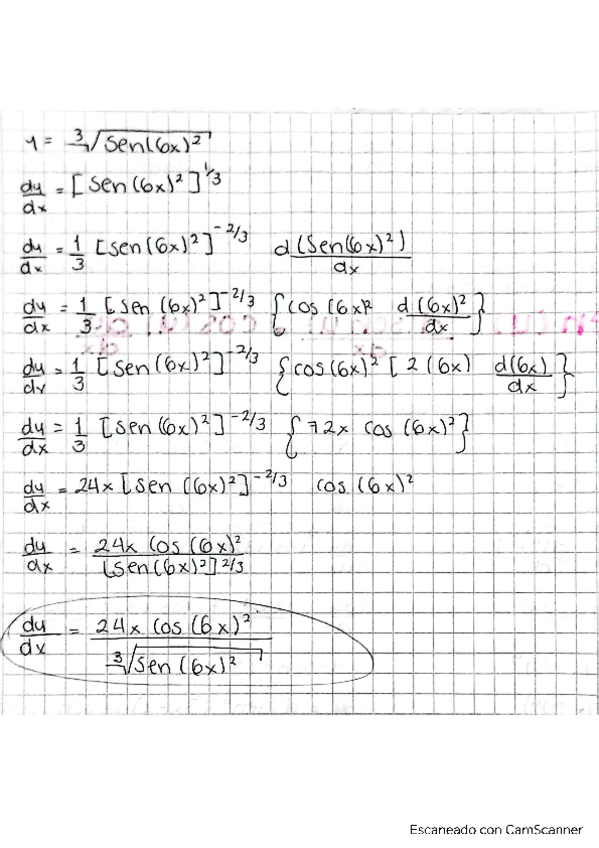 y = ∛(Sen(6x)²)
dy/dx = [Sen(6x)²]^1/3
dy/dx = 1/3 [sen(6x)²]^-2/3 d(Sen(6x)²)/dx
dy/dx = 1/3 [Sen(6x)²]^-2/3 {cos(6x)² d(6x)²/dx}
dy/dx = 1/3 [Sen(6x)²]^-2/3 {cos(6x)² [2(6x) d(6x)/dx}
dy/dx = 1/3 [sen(6x)²]^-2/3 {72x cos(6x)²}
dy/dx = 24x [sen(6x)²]^-2/3 cos(6x)²
dy/dx = 24x cos(6x)²/[sen(6x)²]^2/3
dy/dx = 24x cos(6x)²/∛(Sen(6x)²)
Escaneado con CamScanner